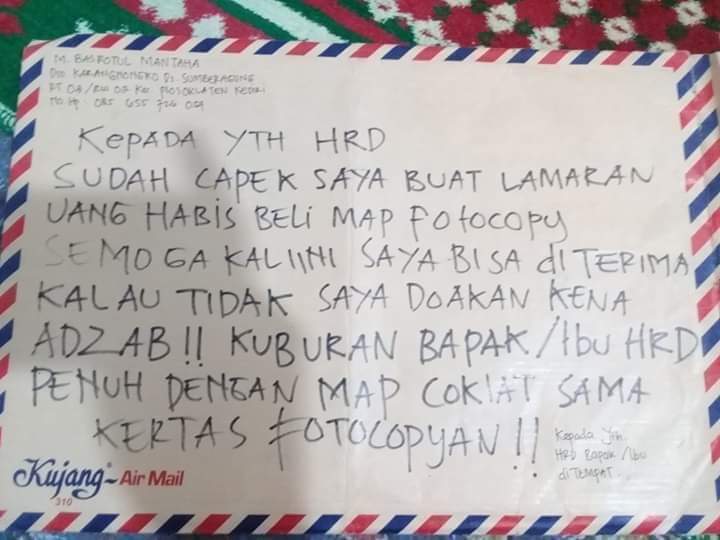 M. BASROTUL MANTAHA
Dsn KARANGNONGKO Ds. SUMBERAGUNG
RT 04 / RW 02 Kec PLOSOKLATEN KEDIRI
No. Hp 085 655 726 029
KEPADA YTH HRD
SUDAH CAPEK SAYA BUAT LAMARAN
UANG HABIS BELI MAP FOTOCOPY
SEMOGA KALI INI SAYA BISA diTERIMA
KALAU TIDAK SAYA DOAKAN KENA
ADZAB!! KUBURAN BAPAK/Ibu HRD
PENUH DENGAN MAP COKLAT SAMA
KERTAS FOTOCOPYAN!!
Kepada Yth.
HRD Bapak /Ibu
diTEMPAT.
Kujang Air Mail
310